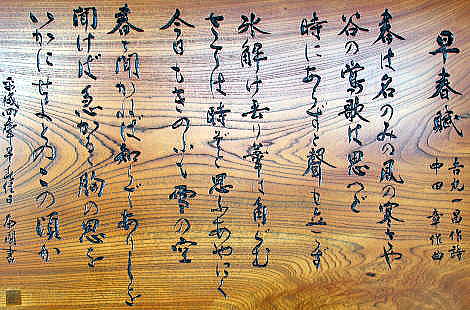 早春賦
吉丸一昌作詩
中田章作曲
春は名のみの風の寒さや
谷の鶯歌は思へど
時にあらずと聲も立てず
氷解け去り葦は角ぐむ
さては時ぞと思ふあやにく
今日もきのふも雪の空
春と聞かねば知らでありしを
聞けば急かるゝ胸の思を
いかにせよとのこの頃か
平成四年 書